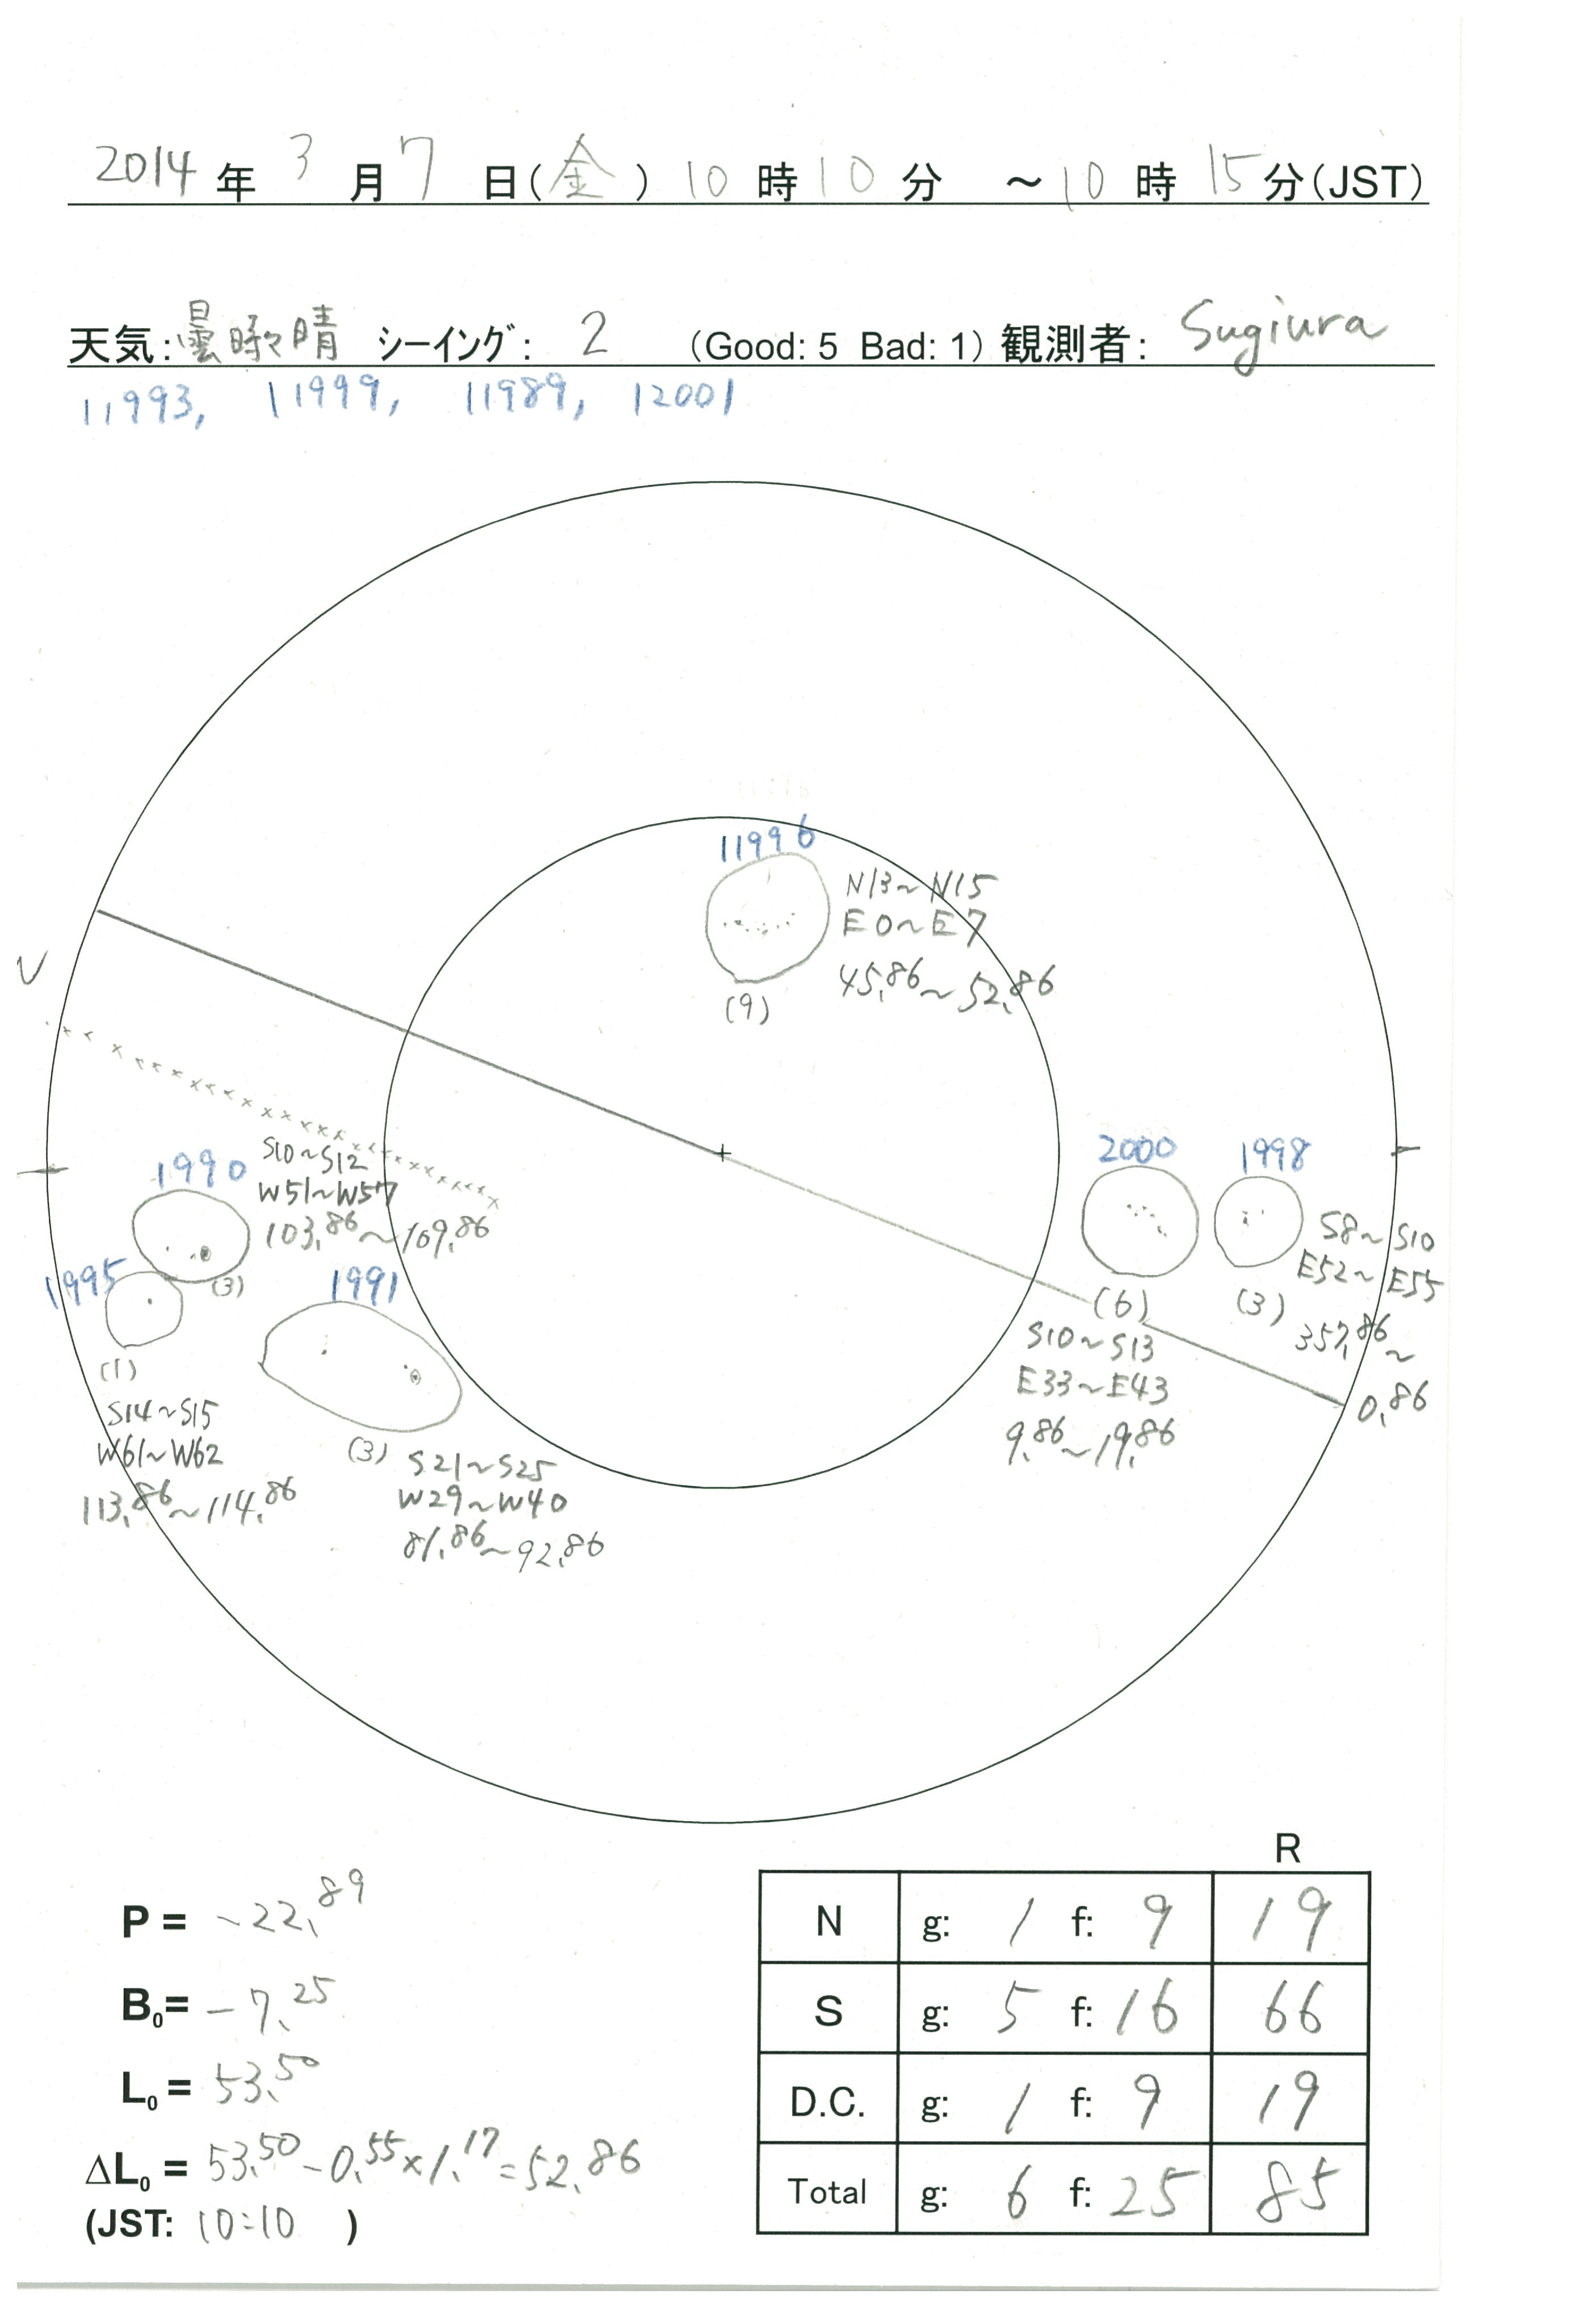 2014年 3月 7日(金) 10時10分 ～10時15分(JST)
天気:曇時々晴 シーイング: 2 (Good: 5 Bad: 1) 観測者: Sugiura
11993, 11999, 11989, 12001
11996
N13～N15
E0～E7
45.86～52.86
(9)
1990
S10～S12
W51～W57
103.86～109.86
(3)
1995
(1)
S14～S15
W61～W62
113.86～114.86
1991
(3)
S21～S25
W29～W40
81.86～92.86
2000
(6)
S10～S13
E33～E43
9.86～19.86
1998
(3)
S8～S10
E52～E55
357.86～
0.86
P = -22.89
B0= -7.25
L0 = 53.50
ΔL0 = 53.50-0.55×1.17=52.86
(JST: 10:10 )
R
N g: 1 f: 9 19
S g: 5 f: 16 66
D.C. g: 1 f: 9 19
Total g: 6 f: 25 85